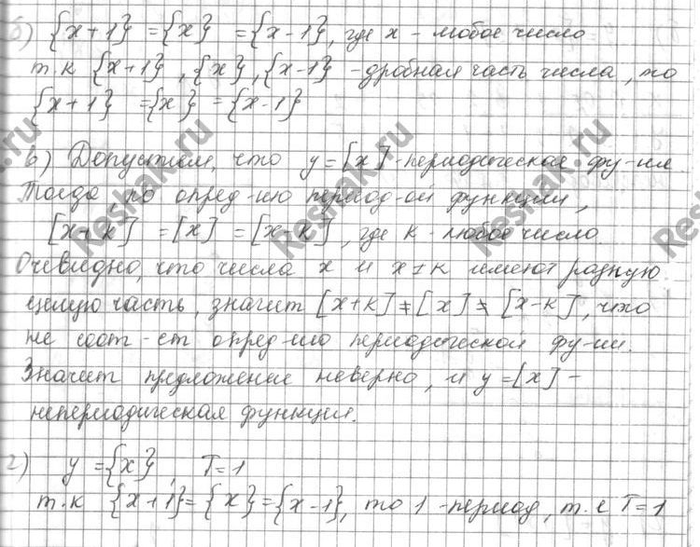 б) {x+1} = {x} = {x-1}, где x - любое число
т.к {x+1}, {x}, {x-1} - дробная часть числа, то
{x+1} = {x} = {x-1}
в) Допустим, что y = [x] - периодическая фу-ия
Тогда по опред-ию период-ой функции,
[x+k] = [x] = [x-k], где k - любое число.
Очевидно, что числа x и x±k имеют разную
целую часть, значит [x+k] ≠ [x] ≠ [x-k], что
не соот-ет опред-ию периодической фу-ии.
Значит предложение неверно, и y = [x] -
непериодическая функция.
г) y = {x}, T = 1
т.к {x+1} = {x} = {x-1}, то 1 - период, т.е T = 1
Reshak.ru
Reshak.ru
Reshak.ru